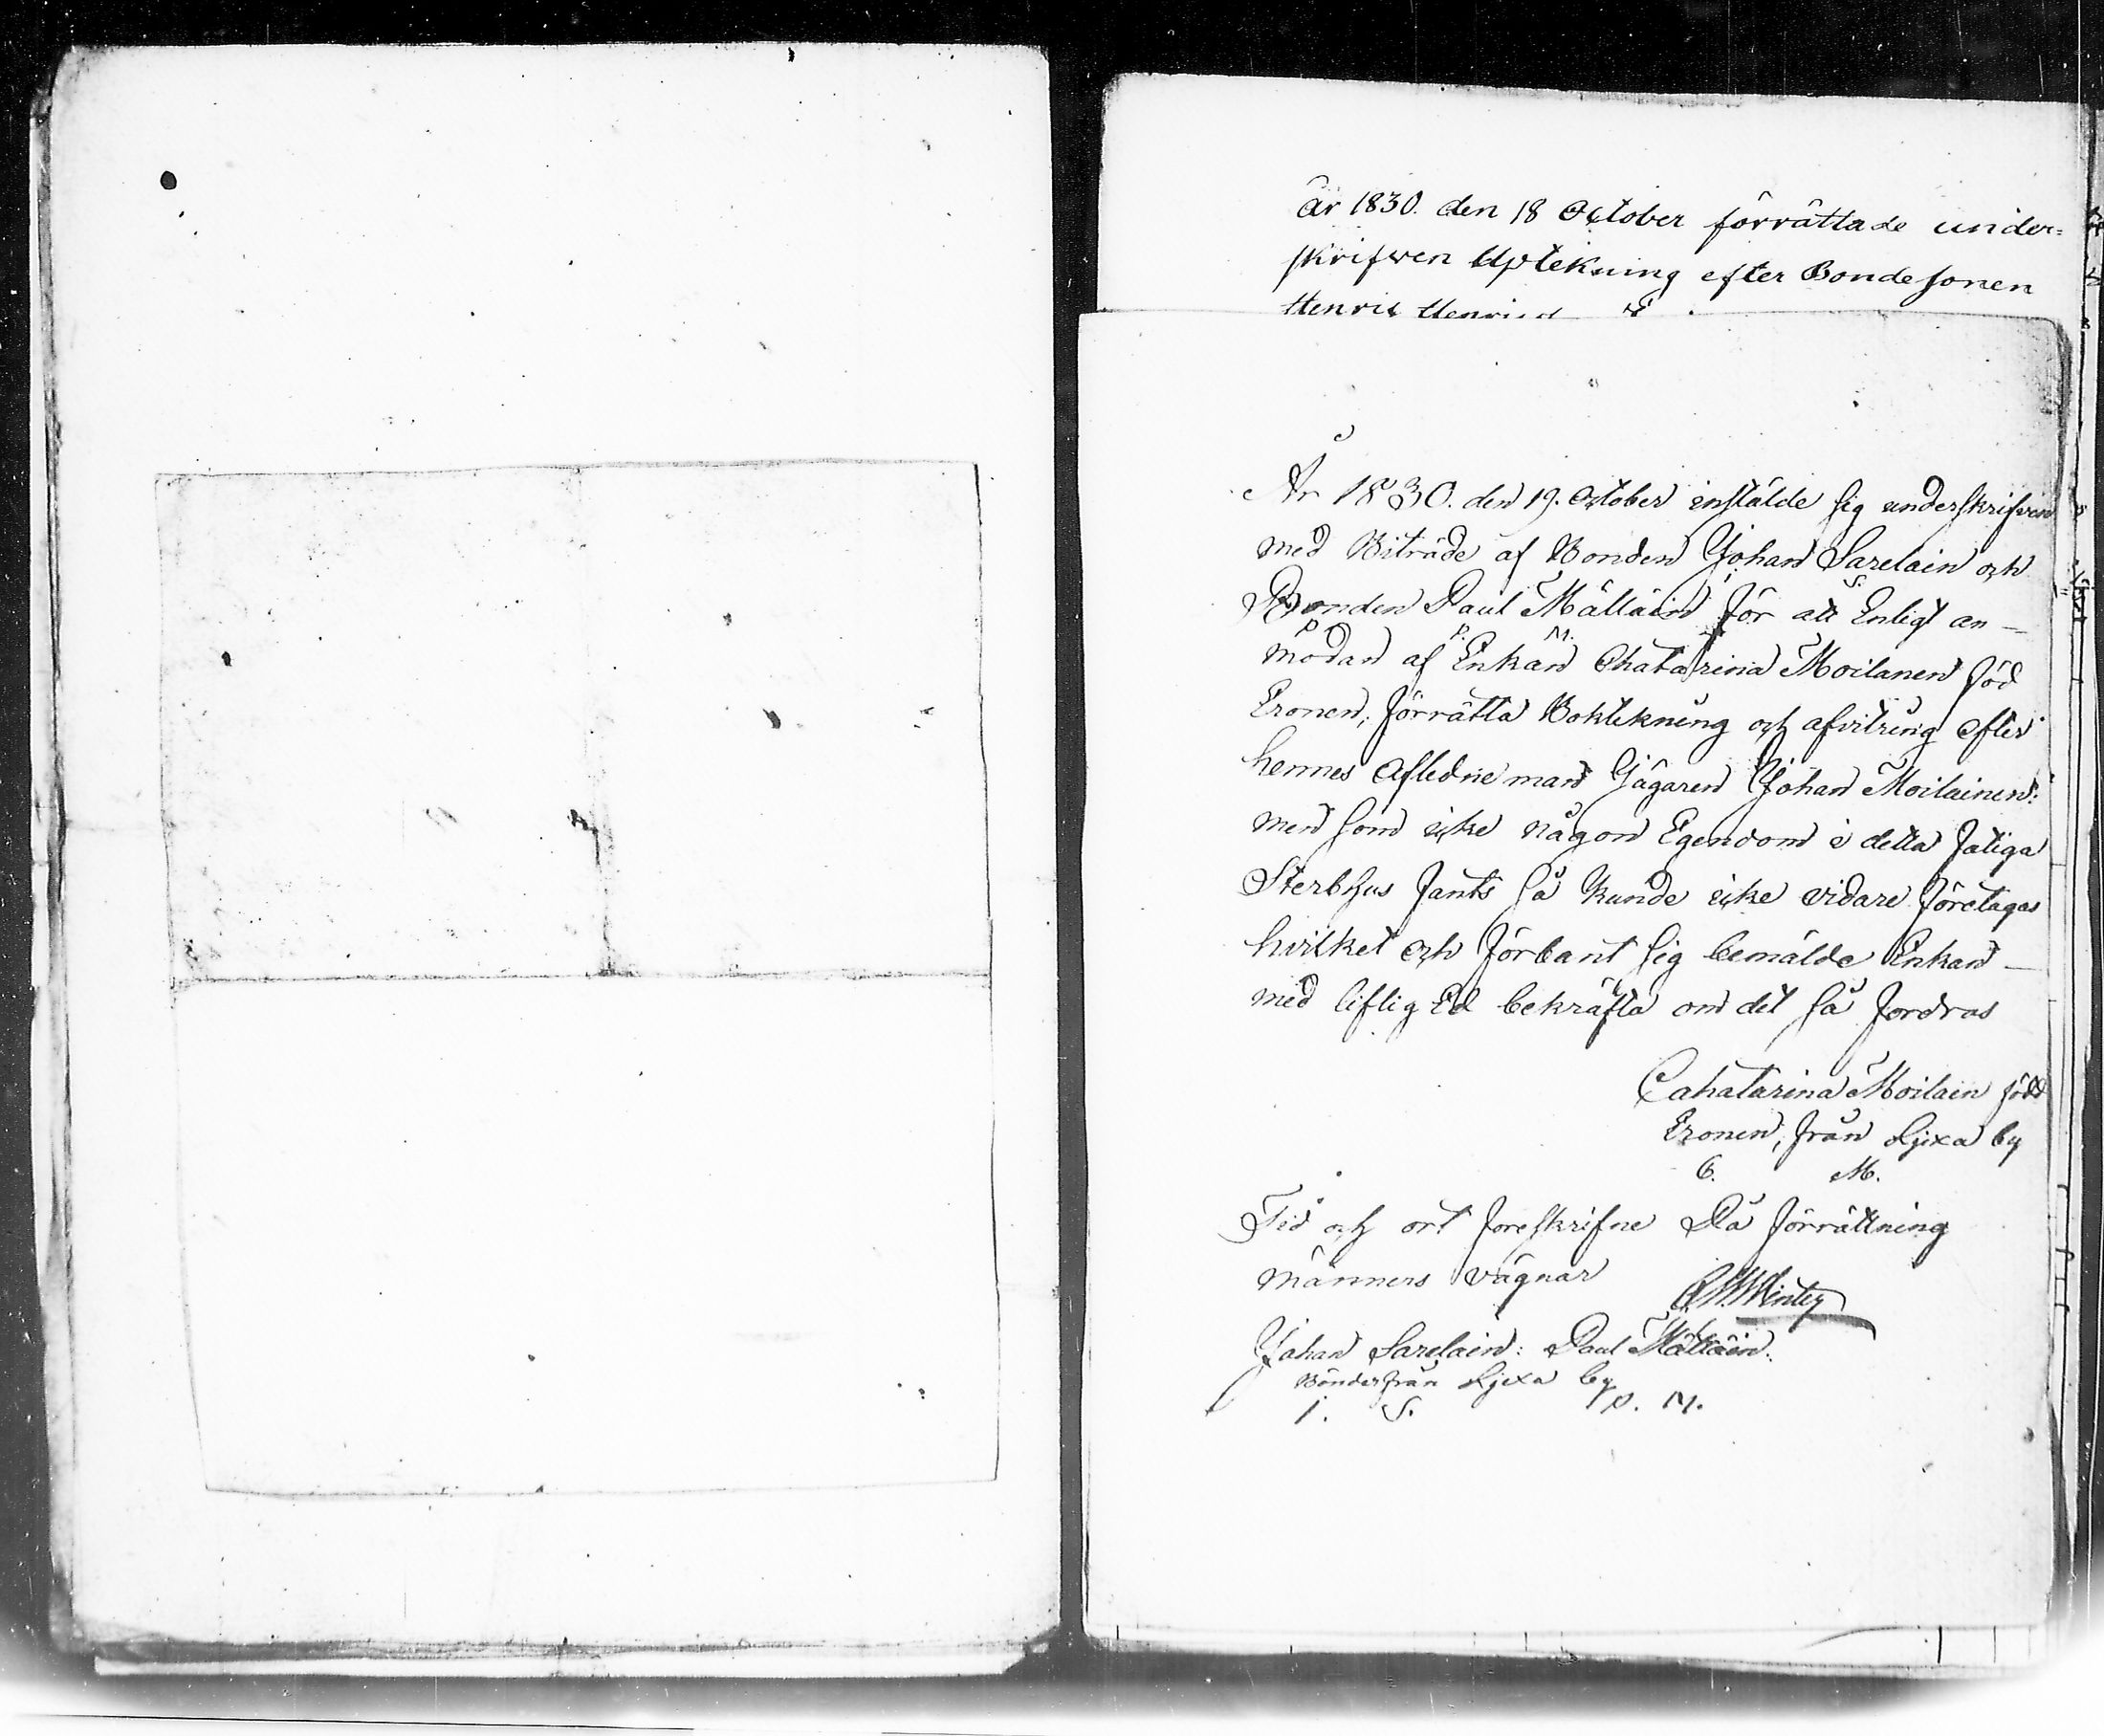 år 1830. den 18 October förrättade under=
skrifven Uptekning efter Bondesonen
Henrik
År 1830. den 19. October instälde sig underskrifven
med Biträde af Bonden Johan Sarelain och
J. S.
Bonden Paul Mälläin för att Enligt an-
P. M.
modan af Enkan Chatarina Moilanen föd
Eronen, förrätta Boktekning och afvitring efter
hennes Afledne man Jägaren Johan Moilainen:
men som icke någon Egendom i detta fatiga
Sterbhus fants så kunde icke vidare företagas
hvilket och förbant sig bemälde Enkan
med liflig Ed bekräfta om det så fordras
Cahatarina Moilain född
Eronen, från Ljexa by
C. M.
Tid och ort föreskrifne På förrättning
männers vägnar
Johan Sarelain: Paul Mälläin.
Bönder från Ljexa by
J. S. P. M.